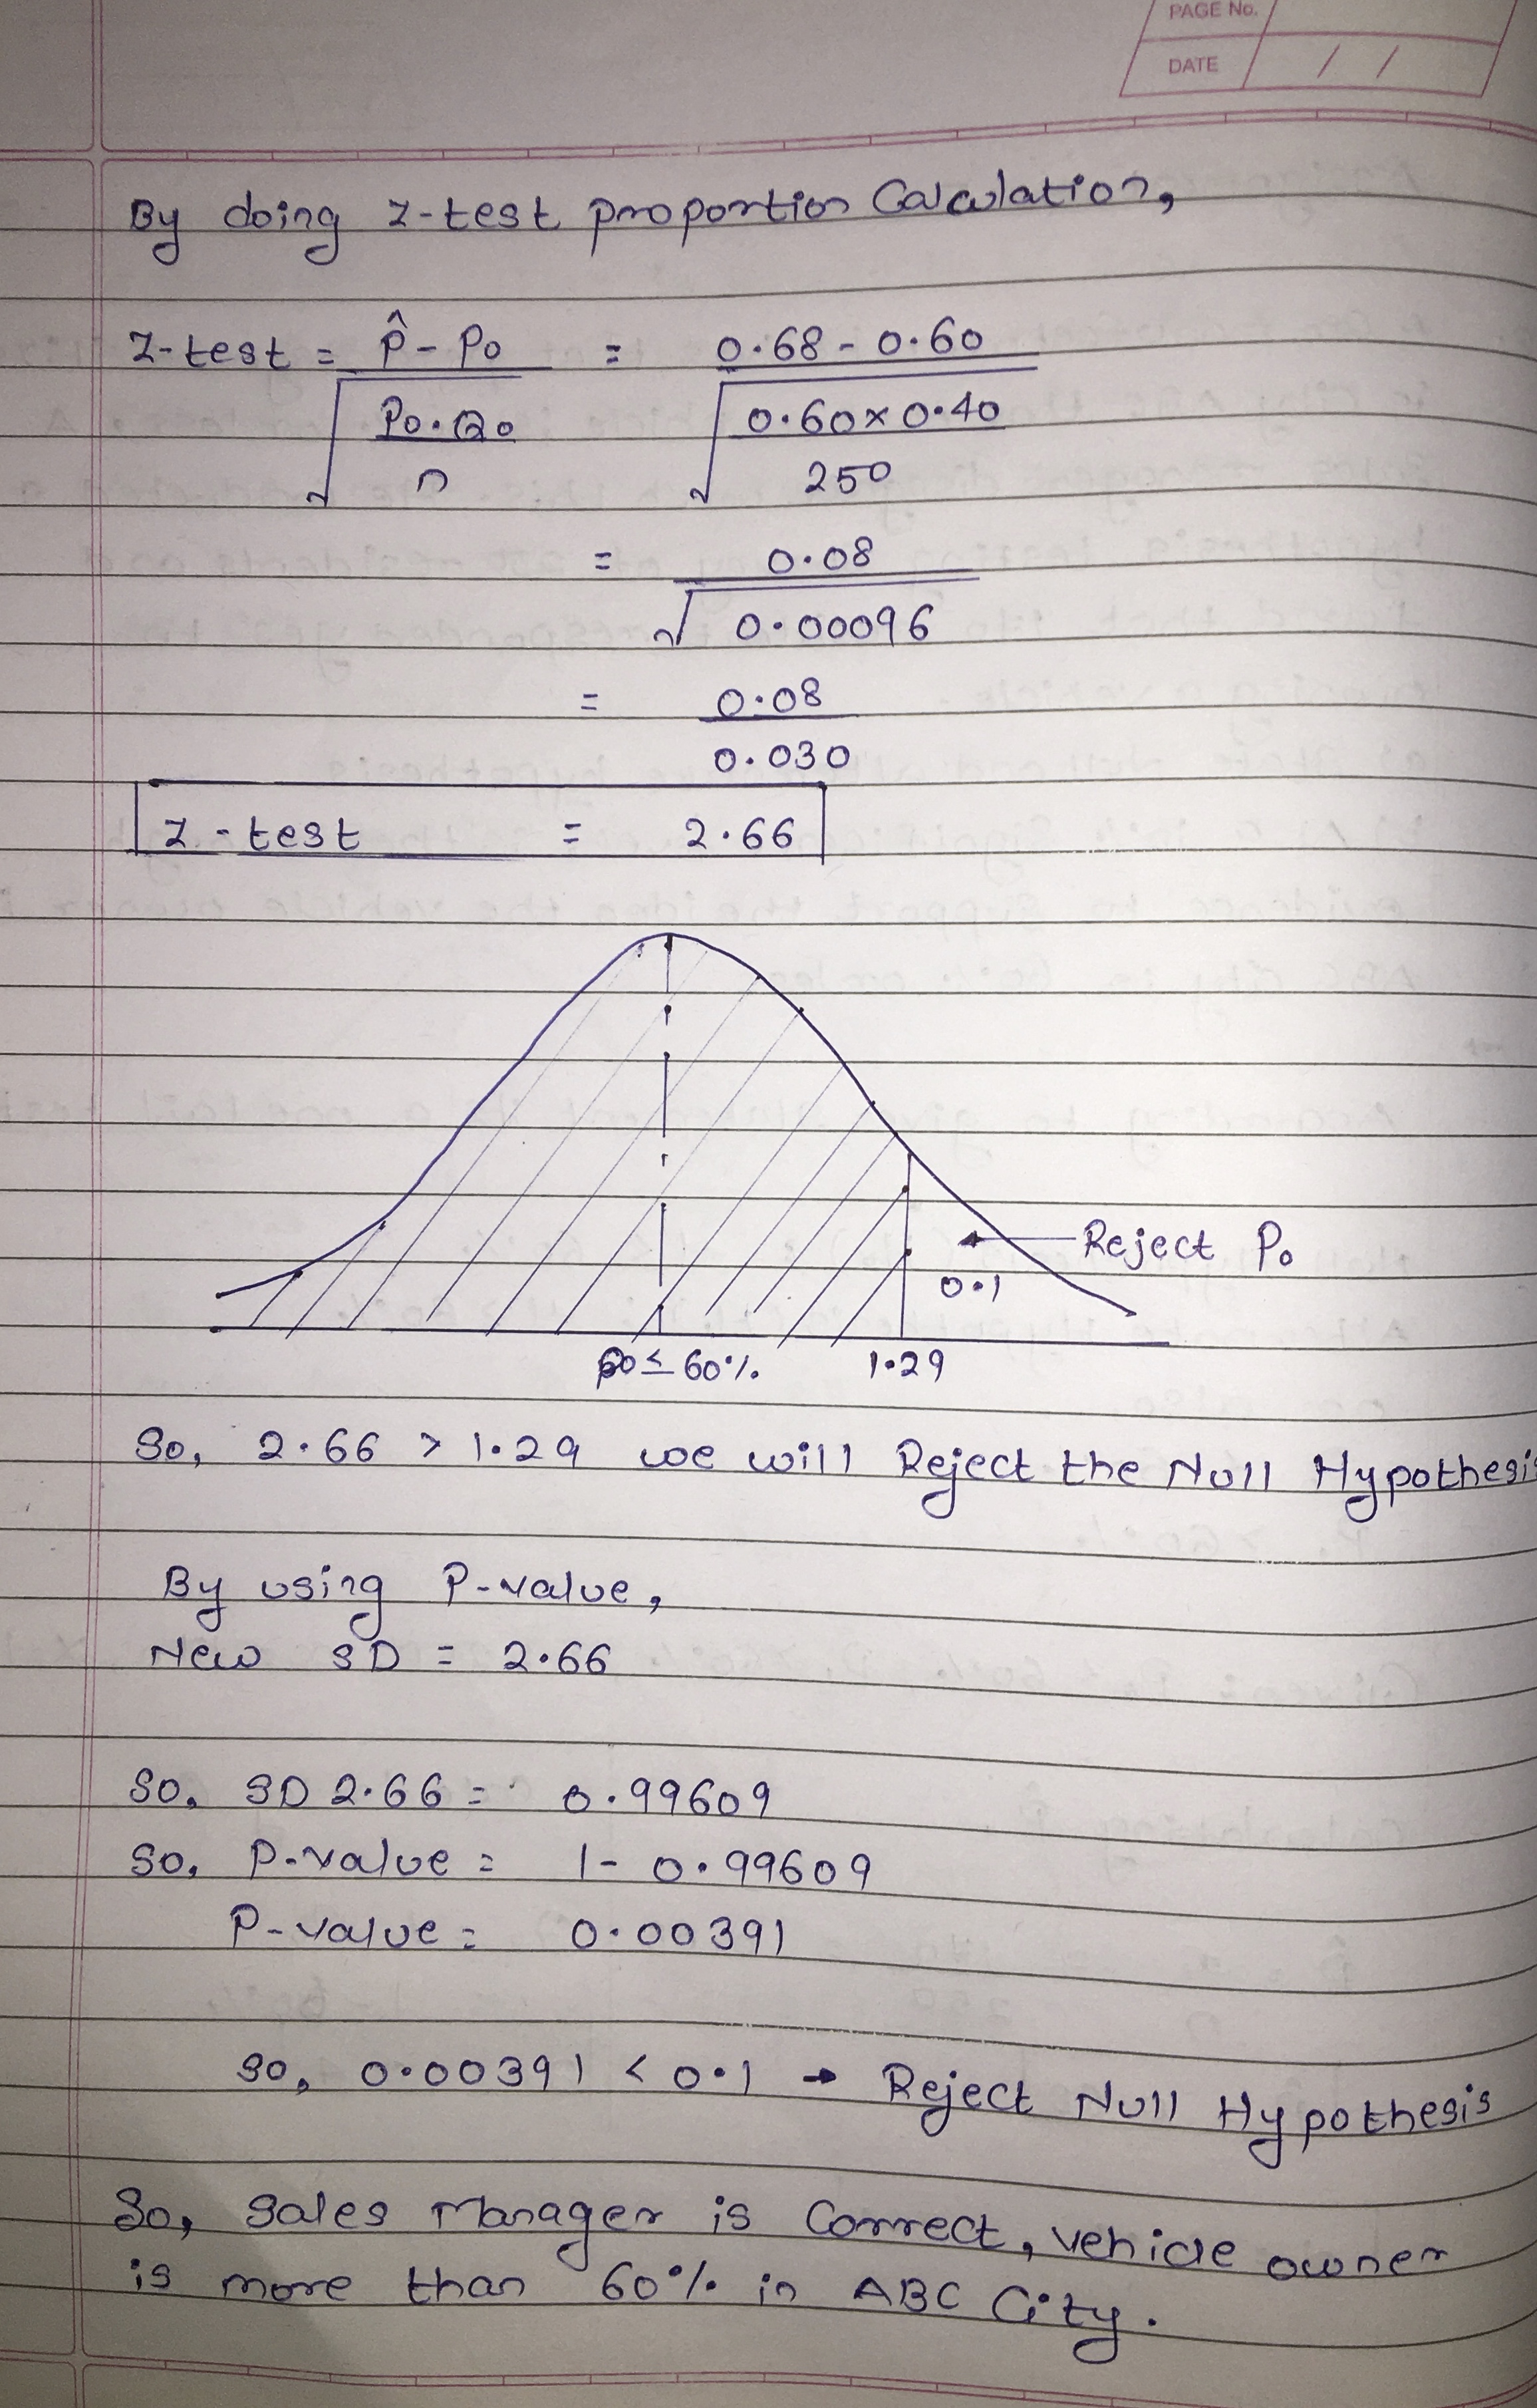 PAGE No.
DATE / /
By doing z-test proportion Calculation,
z-test = p̂ - Po = 0.68 - 0.60
√ Po.Qo √ 0.60 x 0.40
n 250
= 0.08
√ 0.00096
= 0.08
0.030
z-test = 2.66
Reject Po
0.1
po ≤ 60% 1.29
So, 2.66 > 1.29 we will Reject the Null Hypothesis
By using P-value,
New SD = 2.66
So, SD 2.66 = 0.99609
So, P-value = 1 - 0.99609
P-value = 0.00391
So, 0.00391 < 0.1 → Reject Null Hypothesis
So, Sales Manager is Correct, vehicle owner
is more than 60% in ABC City.